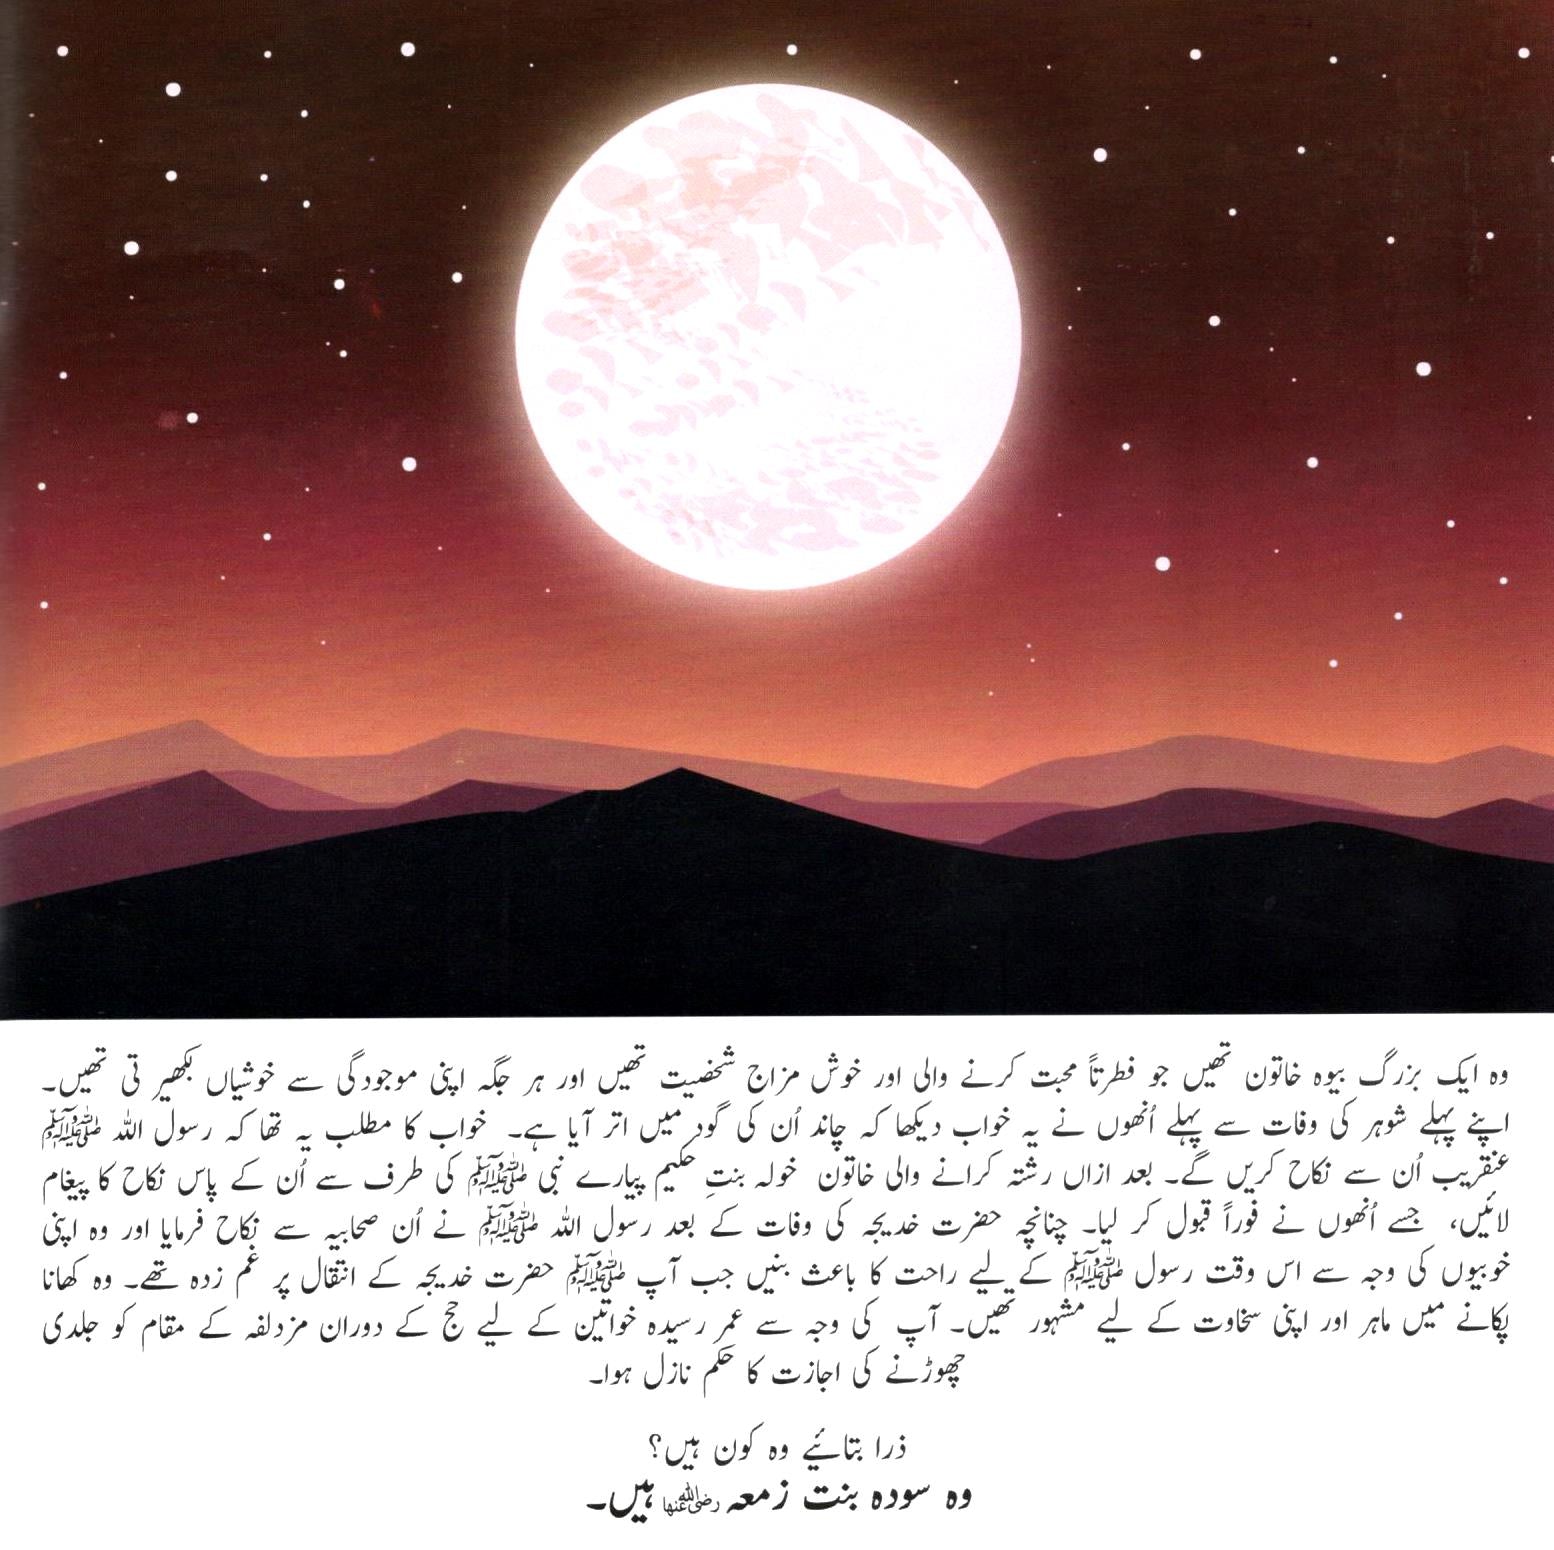 وہ ایک بزرگ بیوہ خاتون تھیں جو فطرتاً محبت کرنے والی اور خوش مزاج شخصیت تھیں اور ہر جگہ اپنی موجودگی سے خوشیاں بکھیر تی تھیں۔
اپنے پہلے شوہر کی وفات سے پہلے اُنھوں نے یہ خواب دیکھا کہ چاند اُن کی گود میں اتر آیا ہے۔ خواب کا مطلب یہ تھا کہ رسول اللہ ﷺ
عنقریب اُن سے نکاح کریں گے۔ بعد ازاں رشتہ کرانے والی خاتون خولہ بنتِ حکیم پیارے نبی ﷺ کی طرف سے اُن کے پاس نکاح کا پیغام
لائیں، جسے اُنھوں نے فوراً قبول کر لیا۔ چنانچہ حضرت خدیجہ کی وفات کے بعد رسول اللہ ﷺ نے اُن صحابیہ سے نکاح فرمایا اور وہ اپنی
خوبیوں کی وجہ سے اس وقت رسول ﷺ کے لیے راحت کا باعث بنیں جب آپ ﷺ حضرت خدیجہ کے انتقال پر غم زدہ تھے۔ وہ کھانا
پکانے میں ماہر اور اپنی سخاوت کے لیے مشہور تھیں۔ آپ کی وجہ سے عمر رسیدہ خواتین کے لیے حج کے دوران مزدلفہ کے مقام کو جلدی
چھوڑنے کی اجازت کا حکم نازل ہوا۔
ذرا بتائیے وہ کون ہیں؟
وہ سودہ بنت زمعہ رضی اللہ عنہا ہیں۔